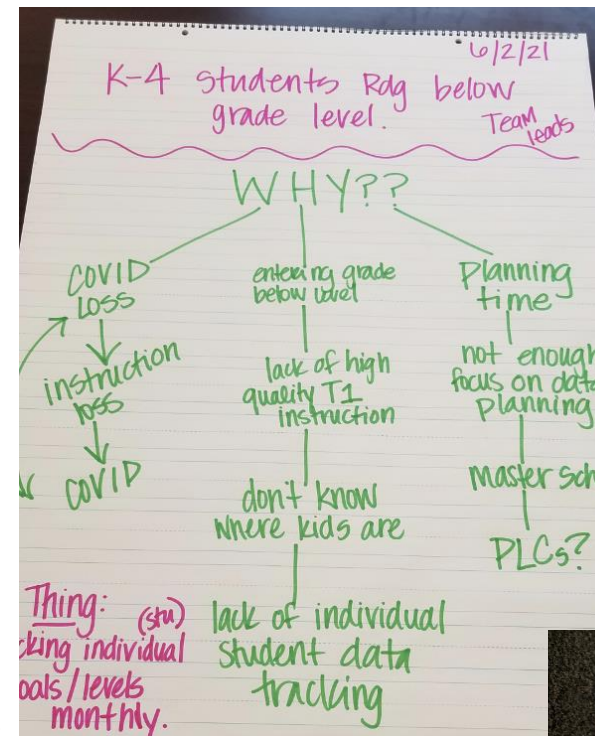 6/2/21
K-4 Students Rdg below
grade level.
Team
leads
WHY??
COVID
LOSS
instruction
loss
COVID
entering grade
below level
lack of high
quality T1
instruction
don't know
where kids are
lack of individual
student data
tracking
Planning
time
not enough
focus on data
planning
Master Sch
PLCs?
Thing: (stu)
cking individual
oals/levels
monthly.